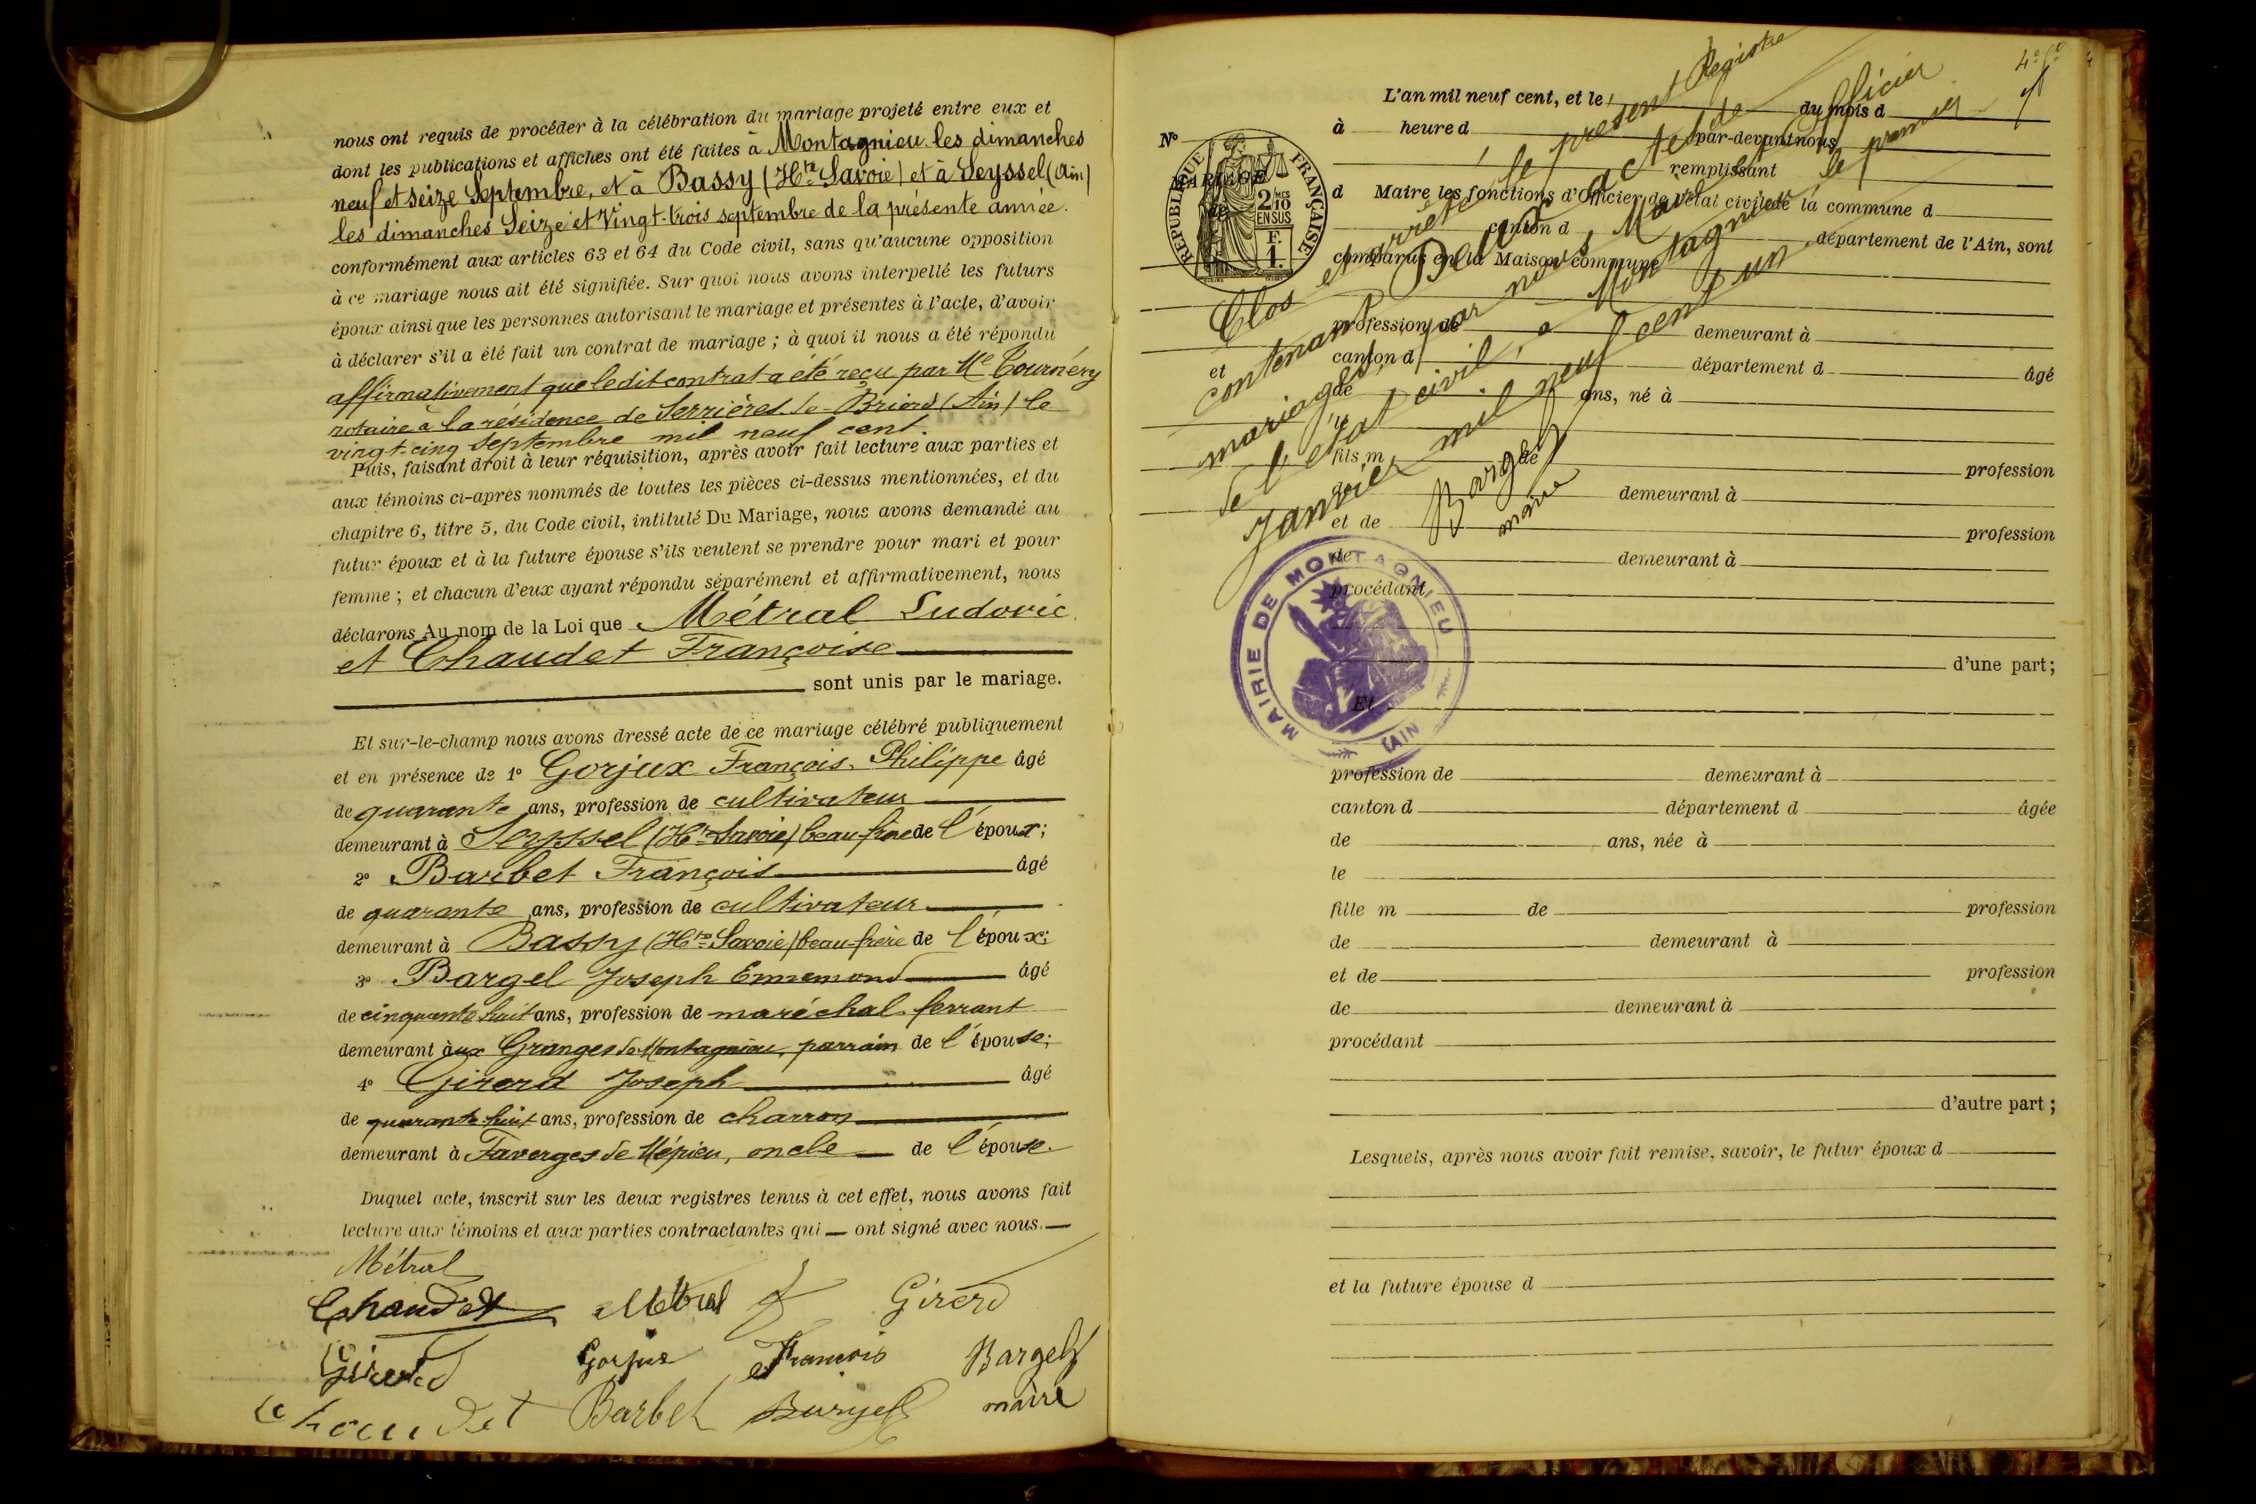 nous ont requis de procéder à la célébration du mariage projeté entre eux et
dont les publications et affiches ont été faites à Montagnieu les dimanches
neuf et seize Septembre, et à Bassy (Hte Savoie) et à Seyssel (Ain)
les dimanches Seize et Vingt-trois septembre de la présente année.
conformément aux articles 63 et 64 du Code civil, sans qu'aucune opposition
à ce mariage nous ait été signifiée. Sur quoi nous avons interpellé les futurs
époux ainsi que les personnes autorisant le mariage et présentes à l'acte, d'avoir
à déclarer s'il a été fait un contrat de mariage ; à quoi il nous a été répondu
affirmativement que ledit contrat a été reçu par Me Tournéry
notaire à la résidence de Serrières de Briord (Ain) le
vingt-cinq septembre mil neuf cent.
Puis, faisant droit à leur réquisition, après avoir fait lecture aux parties et
aux témoins ci-après nommés de toutes les pièces ci-dessus mentionnées, et du
chapitre 6, titre 5, du Code civil, intitulé Du Mariage, nous avons demandé au
futur époux et à la future épouse s'ils veulent se prendre pour mari et pour
femme ; et chacun d'eux ayant répondu séparément et affirmativement, nous
déclarons Au nom de la Loi que Métral Ludovic
et Chaudet Françoise
sont unis par le mariage.
Et sur-le-champ nous avons dressé acte de ce mariage célébré publiquement
et en présence de 1° Gorjux François-Philippe âgé
de quarante ans, profession de cultivateur
demeurant à Seyssel (Hte Savoie) beau-frère de l'époux ;
2° Barbet François âgé
de quarante ans, profession de cultivateur
demeurant à Bassy (Hte Savoie) beau-frère de l'époux ;
3° Bargel Joseph Ennemond âgé
de cinquante huit ans, profession de maréchal-ferrant
demeurant aux Granges de Montagnieu, parrain de l'épouse ;
4° Girerd Joseph âgé
de quarante huit ans, profession de charron
demeurant à Faverges de Mépieu, oncle de l'épouse.
Duquel acte, inscrit sur les deux registres tenus à cet effet, nous avons fait
lecture aux témoins et aux parties contractantes qui ont signé avec nous.
Métral
Chaudet Métral Girerd
Girerd Gorjux François Bargel
Chaudet Barbet Bargel maire
L'an mil neuf cent, et le du mois d
N° à heure d par-devant nous
remplissant
MARIAGE
de
d Maire les fonctions d'Officier de l'état civil de la commune d
canton d département de l'Ain, sont
comparus en la Maison commune
RÉPUBLIQUE FRANÇAISE
2/10 EN SUS
F. 1.
profession de demeurant à
et
canton d département d âgé
de ans, né à
le
fils m de profession
de demeurant à
et de profession
de demeurant à
procédant
d'une part ;
Et
profession de demeurant à
canton d département d âgée
de ans, née à
le
fille m de profession
de demeurant à
et de profession
de demeurant à
procédant
d'autre part ;
Lesquels, après nous avoir fait remise, savoir, le futur époux d
et la future épouse d
Clos et arrêté le présent Registre
contenant Deux actes de
mariages, par nous Maire officier
de l'état civil, à Montagnieu le premier
Janvier mil neuf cent un
Bargel
maire
MAIRIE DE MONTAGNIEU
(AIN)